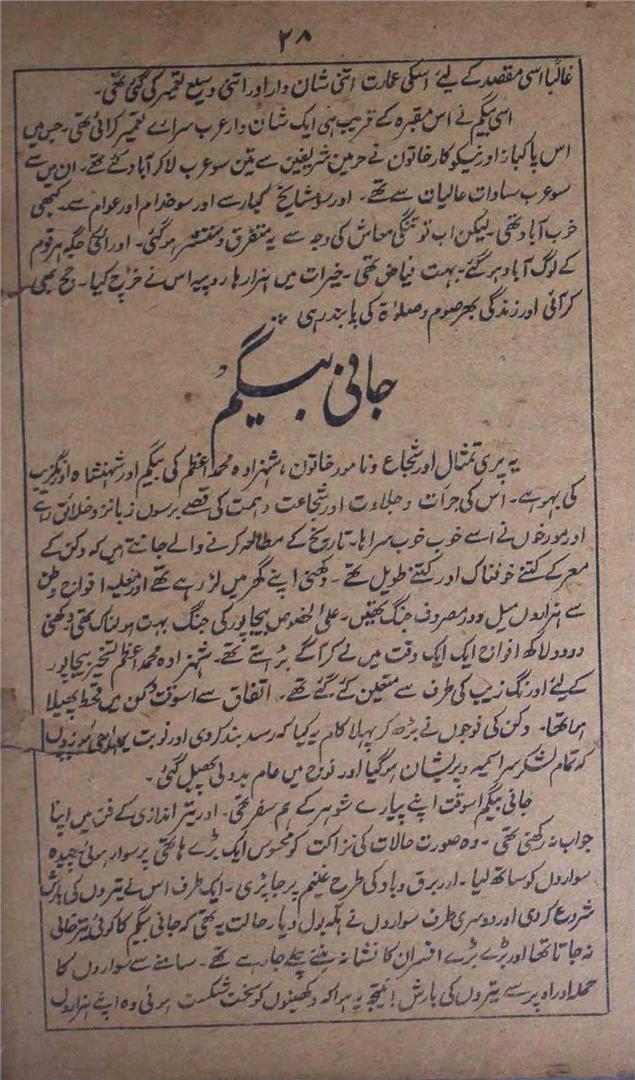 ۲۸
غالباً اسی مقصد کے لیئے اسکی عمارت اتنی شان دار اور اتنی وسیع تعمیر کی گئی تھی۔
اسی بیگم نے اس مقبرہ کے قریب ہی ایک شان دار عرب سرائے تعمیر کرائی تھی۔ جس میں
اس پاکباز اور نیکوکار خاتون نے حرمین شریفین سے تین سو عرب لا کر آباد کئے تھے۔ ان میں سے
سو عرب سادات عالیان سے تھے۔ اور سو مشایخ کبار سے اور سو خدام اور عوام سے۔ کبھی
خوب آباد تھی۔ لیکن اب تو تنگی معاش کی وجہ سے یہ متفرق و منتشر ہوگئی۔ اور انکی جگہ ہر قوم
کے لوگ آباد ہو گئے۔ بہت فیاض تھی۔ خیرات میں ہزارہا روپیہ اس نے خرچ کیا۔ حج بھی
کر آئی اور زندگی بھر صوم و صلوٰۃ کی پابند رہی
جانی بیگم
یہ پری تمثال اور شجاع و نامور خاتون، شہزادہ محمد اعظم کی بیگم اور شہنشاہ اورنگزیب
کی بہو ہے۔ اس کی جرأت و جلادت اور شجاعت و ہمت کی قصے برسوں زبانزد خلائق رہے
اور مورخوں نے اسے خوب خوب سراہا۔ تاریخ کے مطالعہ کرنے والے جانتے ہیں کہ دکن کے
معرکے کتنے خوفناک اور کتنے طویل تھے۔ دکھنی اپنے گھر میں لڑ رہے تھے اور مغلیہ افواج وطن
سے ہزاروں میل دور مصروف جنگ تھیں۔ علی الخصوص بیجاپور کی جنگ بہت ہولناک تھی۔ دکھنی
دو دو لاکھ افواج ایک ایک وقت میں لے کر آگے بڑھتے تھے۔ شہزادہ محمد اعظم تسخیر بیجاپور
کے لیئے اورنگ زیب کی طرف سے متعین کئے گئے تھے۔ اتفاق سے اسوقت دکن میں قحط پھیلا
ہوا تھا۔ دکن کی فوجوں نے بڑھ کر پہلا کام یہ کیا کہ رسد بند کر دی اور نوبت
کہ تمام لشکر سراسیمہ و پریشان ہوگیا اور فوج میں عام بددلی پھیل گئی۔
جانی بیگم اسوقت اپنے پیارے شوہر کے ہم سفر تھی۔ اور تیر اندازی کے فن میں اپنا
جواب نہ رکھتی تھی۔ وہ صورت حالات کی نزاکت کو محسوس ایک بڑے ہاتھی پر سوار ہوئی چیدہ
سواروں کو ساتھ لیا۔ اور برق و باد کی طرح غنیم پر جا پڑی۔ ایک طرف اس نے تیروں کی بارش
شروع کر دی اور دوسری طرف سواروں نے ہلہ بول دیا۔ حالت یہ تھی کہ جانی بیگم کا کوئی تیر خالی
نہ جاتا تھا اور بڑے بڑے افسر ان کا نشانہ بنتے چلے جا رہے تھے۔ سامنے سے سواروں کا
حملہ اور اوپر سے تیروں کی بارش! نتیجہ یہ ہوا کہ دکھنیوں کو سخت شکست ہوئی وہ اپنے ہزاروں